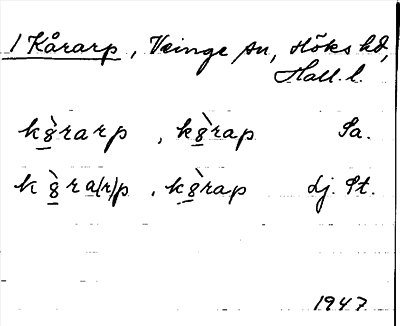 1 Kårarp, Veinge sn, Höks hd,
Hall. l.
k8̀rarp, k8̀rap Sa.
k8̀ra(r)p, k8̀rap Lj. St.
1947